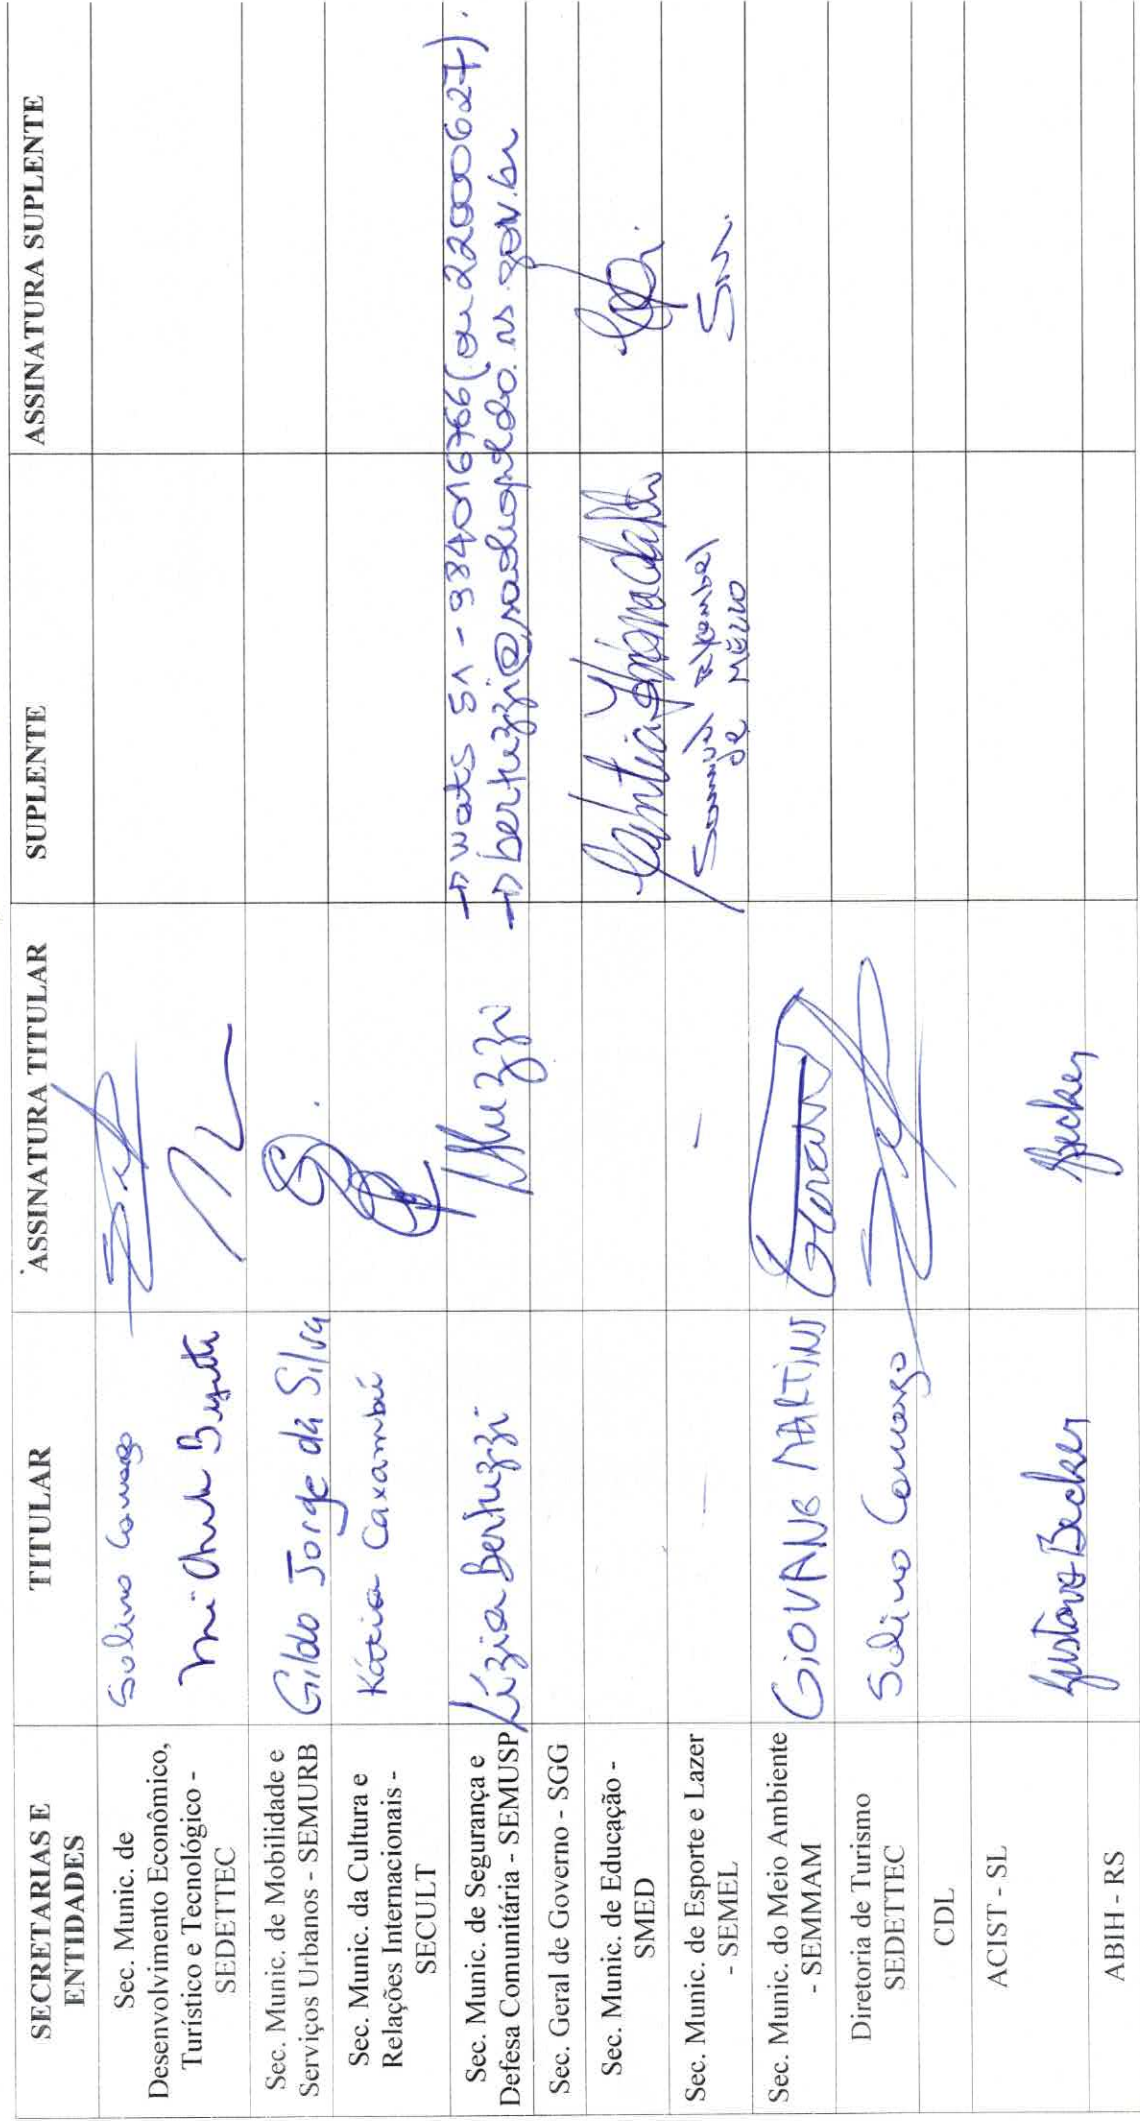 SECRETARIAS E ENTIDADES TITULAR ASSINATURA TITULAR SUPLENTE ASSINATURA SUPLENTE
Sec. Munic. de
Desenvolvimento Econômico,
Turístico e Tecnológico -
SEDETTEC
Sec. Munic. de Mobilidade e
Serviços Urbanos - SEMURB
Gildo Jorge da Silva
Sec. Munic. da Cultura e
Relações Internacionais -
SECULT
Kátia Caxambú
Sec. Munic. de Segurança e
Defesa Comunitária - SEMUSP
Lízia Bertuzzi
→ wats 51-984016766 (ou 22000627).
→ bertuzzi@saoleopoldo.rs.gov.br
Sec. Geral de Governo - SGG
Sec. Munic. de Educação -
SMED
Sec. Munic. de Esporte e Lazer
- SEMEL
- -
de MELLO
Sec. Munic. do Meio Ambiente
- SEMMAM
GIOVANE MARTINS Giovane
Diretoria de Turismo
SEDETTEC
Camargo
CDL
ACIST - SL
Gustavo Becker Becker
ABIH - RS